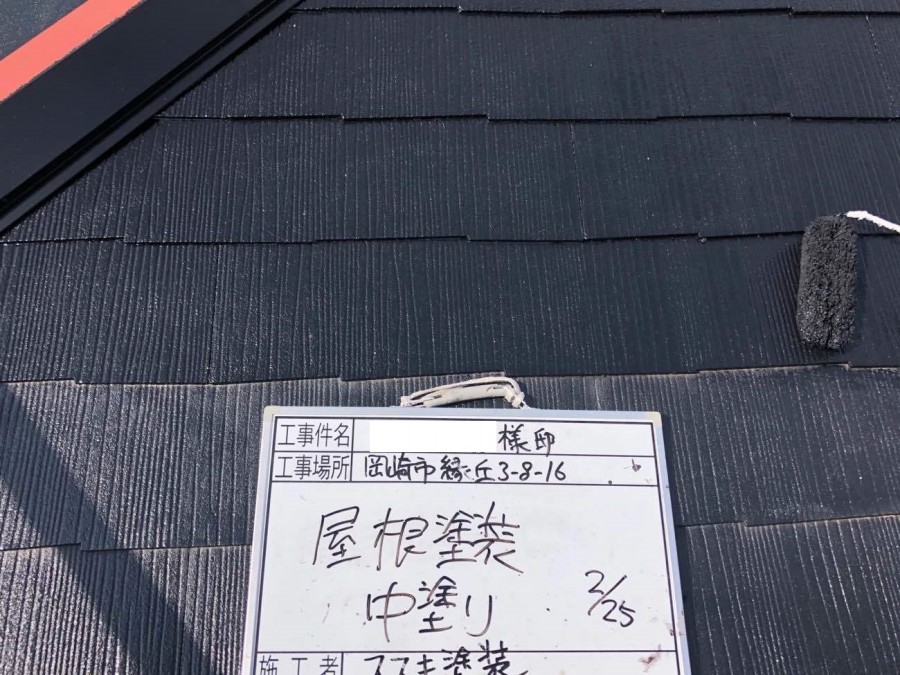 工事件名 様邸
工事場所 岡崎市緑丘3-8-16
屋根塗装
中塗り 2/25
施工者 スズキ塗装